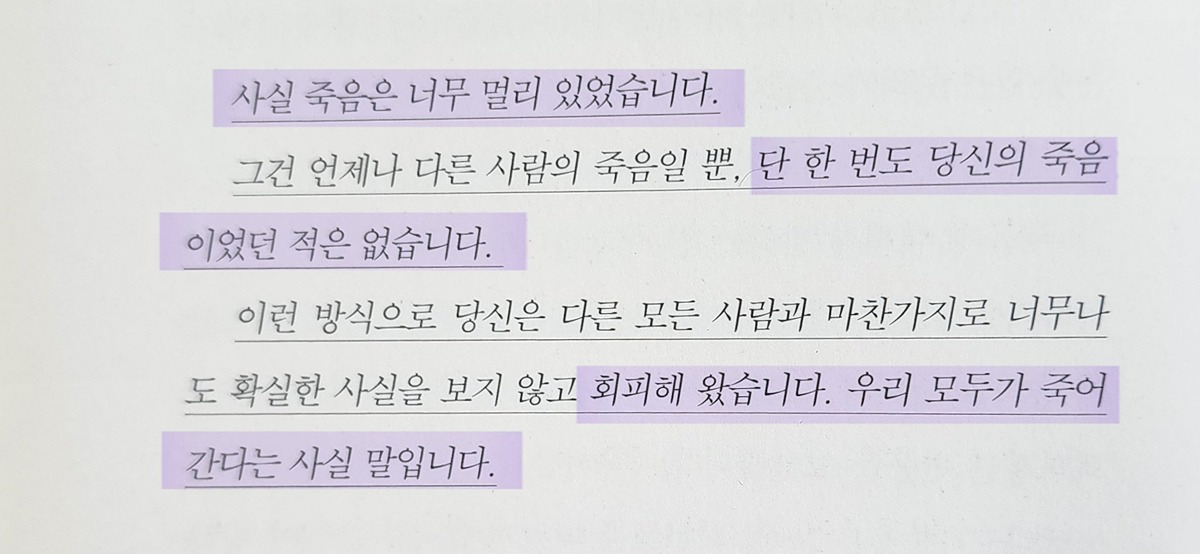 사실 죽음은 너무 멀리 있었습니다.
그건 언제나 다른 사람의 죽음일 뿐, 단 한 번도 당신의 죽음
이었던 적은 없습니다.
이런 방식으로 당신은 다른 모든 사람과 마찬가지로 너무나
도 확실한 사실을 보지 않고 회피해 왔습니다. 우리 모두가 죽어
간다는 사실 말입니다.